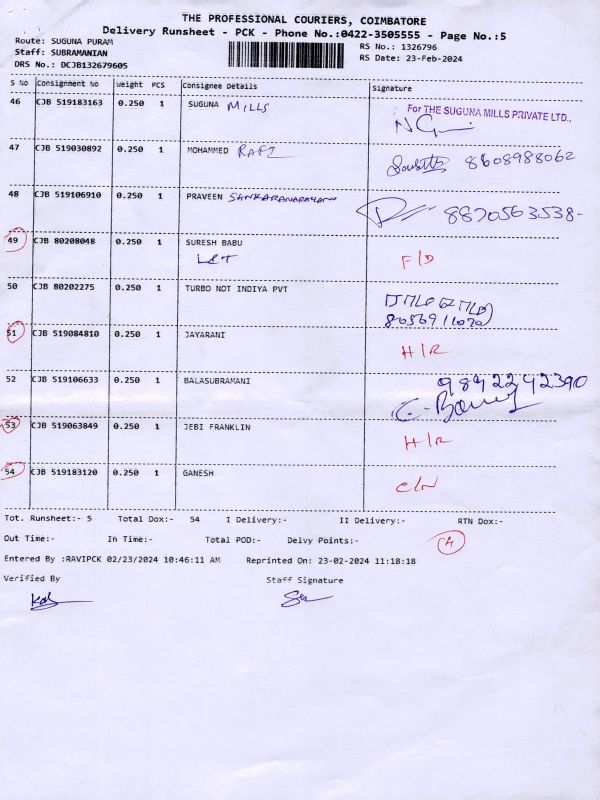 THE PROFESSIONAL COURIERS, COIMBATORE
Delivery Runsheet - PCK - Phone No.:0422-3505555 - Page No.:5
Route: SUGUNA PURAM
Staff: SUBRAMANIAN
DRS No.: DCJB132679605
RS No.: 1326796
RS Date: 23-Feb-2024
S No Consignment No Weight PCS Consignee Details Signature
46 CJB 519183163 0.250 1 SUGUNA MILLS
For THE SUGUNA MILLS PRIVATE LTD.,
47 CJB 519030892 0.250 1 MOHAMMED RAFI 8608988062
48 CJB 519106910 0.250 1 PRAVEEN SANKARANARAYANAN 8870563538-
49 CJB 80208048 0.250 1 SURESH BABU F/D
L&T
50 CJB 80202275 0.250 1 TURBO NOT INDIYA PVT
51 CJB 519084810 0.250 1 JAYARANI H/R
52 CJB 519106633 0.250 1 BALASUBRAMANI 9842242390
53 CJB 519063849 0.250 1 JEBI FRANKLIN H/R
54 CJB 519183120 0.250 1 GANESH C/N
Tot. Runsheet:- 5 Total Dox:- 54 I Delivery:- II Delivery:- RTN Dox:-
Out Time:- In Time:- Total POD:- Delvy Points:- 4
Entered By :RAVIPCK 02/23/2024 10:46:11 AM Reprinted On: 23-02-2024 11:18:18
Verified By Staff Signature